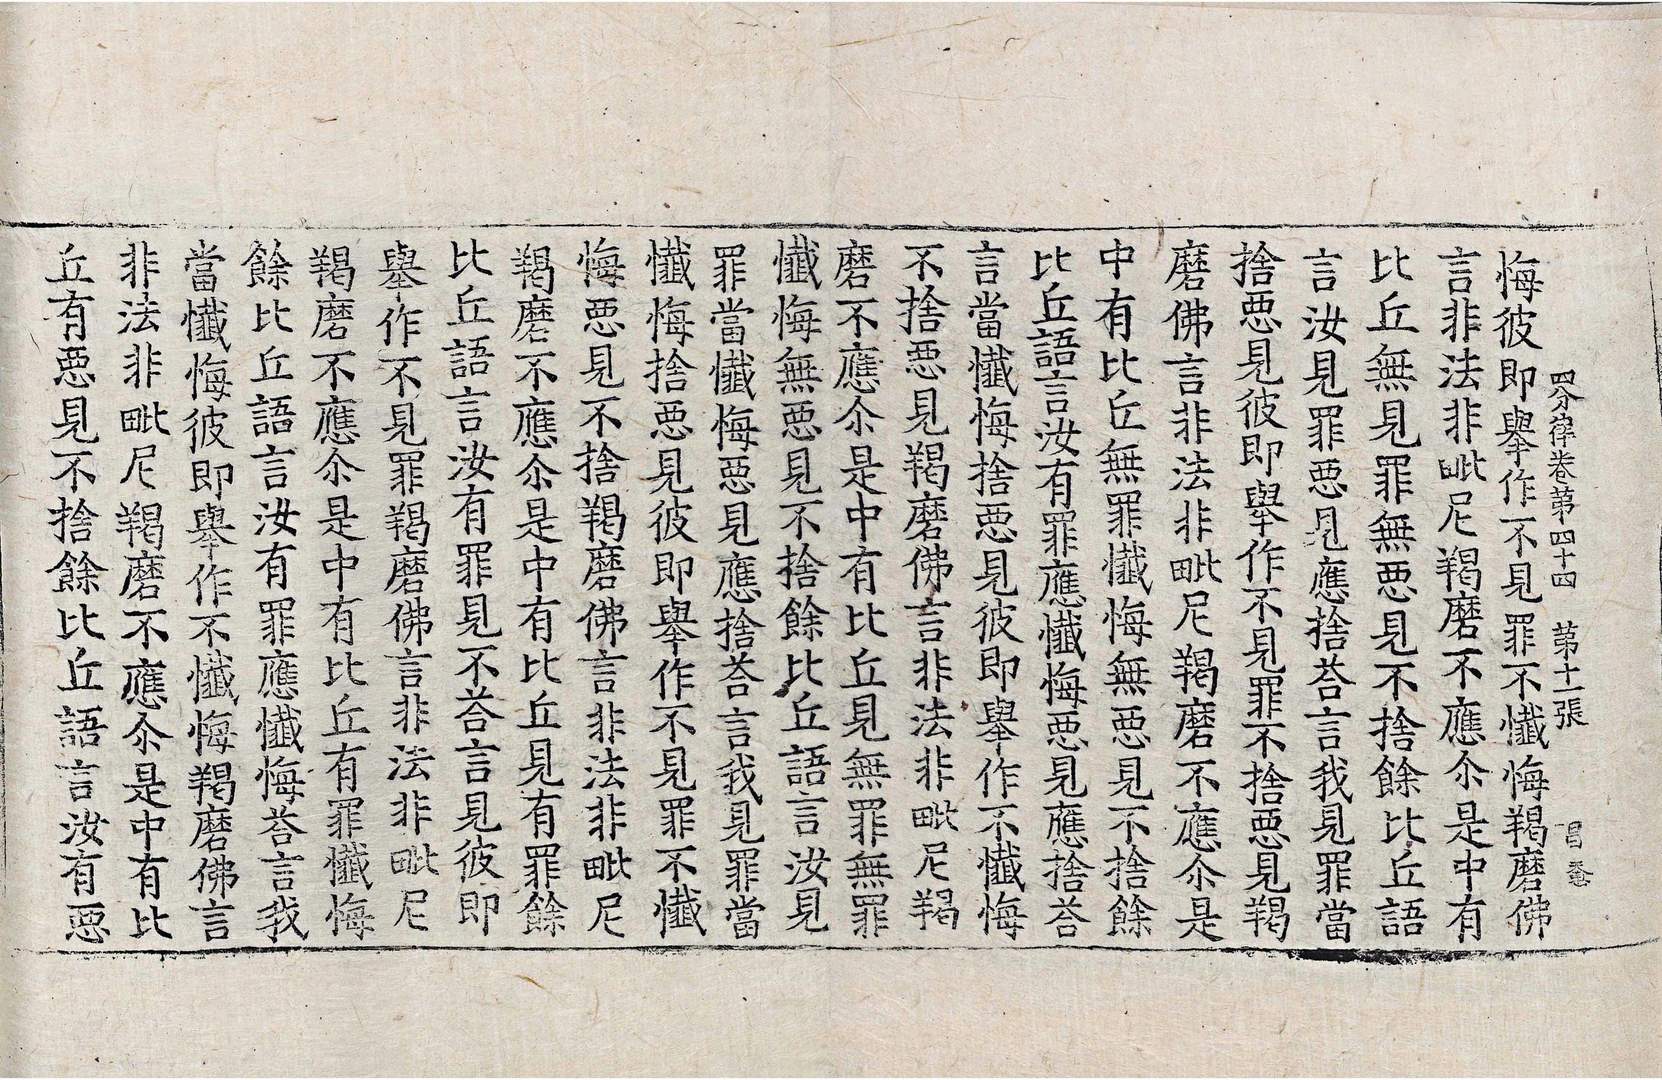 四分律卷第四十四 第十一張 昌
悔彼即舉作不見罪不懺悔羯磨佛
言非法非毗尼羯磨不應尒是中有
比丘無見罪無惡見不捨餘比丘語
言汝見罪惡見應捨荅言我見罪當
捨惡見彼即舉作不見罪不捨惡見羯
磨佛言非法非毗尼羯磨不應尒是
中有比丘無罪懺悔無惡見不捨餘
比丘語言汝有罪應懺悔惡見應捨荅
言當懺悔捨惡見彼即舉作不懺悔
不捨惡見羯磨佛言非法非毗尼羯
磨不應尒是中有比丘見無罪無罪
懺悔無惡見不捨餘比丘語言汝見
罪當懺悔惡見應捨荅言我見罪當
懺悔捨惡見彼即舉作不見罪不懺
悔惡見不捨羯磨佛言非法非毗尼
羯磨不應尒是中有比丘見有罪餘
比丘語言汝有罪見不荅言見彼即
舉作不見罪羯磨佛言非法非毗尼
羯磨不應尒是中有比丘有罪懺悔
餘比丘語言汝有罪應懺悔荅言我
當懺悔彼即舉作不懺悔羯磨佛言
非法非毗尼羯磨不應尒是中有比
丘有惡見不捨餘比丘語言汝有惡